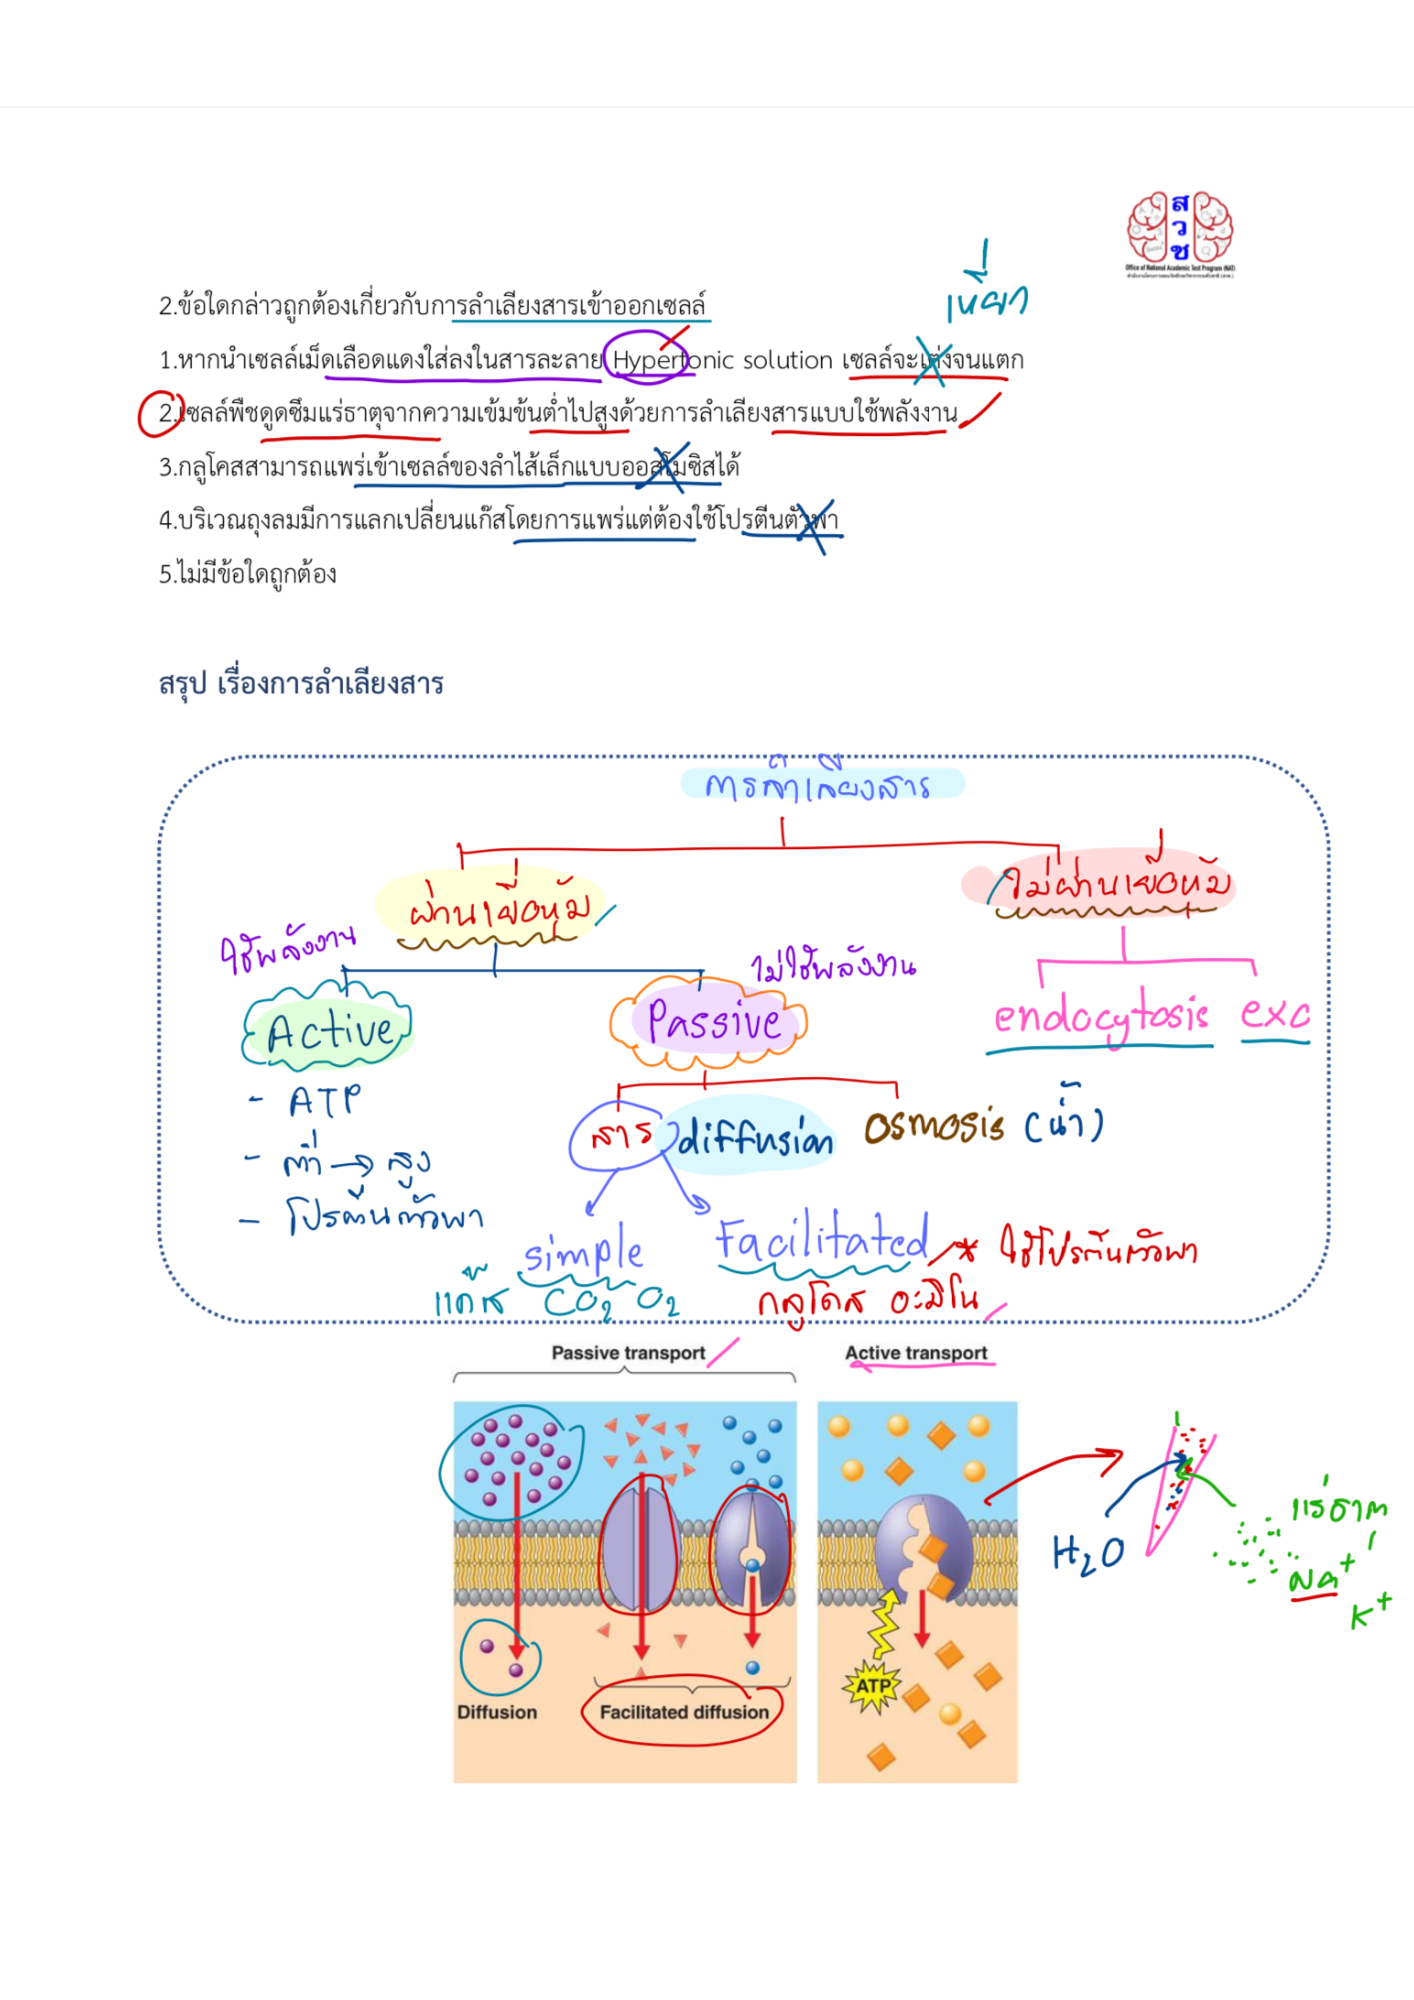 สวช
Office of National Academic Test Program (NAT)
เหี่ยว
2.ข้อใดกล่าวถูกต้องเกี่ยวกับการลำเลียงสารเข้าออกเซลล์
1.หากนำเซลล์เม็ดเลือดแดงใส่ลงในสารละลาย Hypertonic solution เซลล์จะเต่งจนแตก
2.เซลล์พืชดูดซึมแร่ธาตุจากความเข้มข้นต่ำไปสูงด้วยการลำเลียงสารแบบใช้พลังงาน
3.กลูโคสสามารถแพร่เข้าเซลล์ของลำไส้เล็กแบบออสโมซิสได้
4.บริเวณถุงลมมีการแลกเปลี่ยนแก๊สโดยการแพร่แต่ต้องใช้โปรตีนตัวพา
5.ไม่มีข้อใดถูกต้อง
สรุป เรื่องการลำเลียงสาร
การลำเลียงสาร
ผ่านเยื่อหุ้ม ไม่ผ่านเยื่อหุ้ม
ใช้พลังงาน ไม่ใช้พลังงาน
Active Passive endocytosis exo
- ATP
สาร diffusion osmosis (น้ำ)
- ต่ำ → สูง
- โปรตีนตัวพา
simple Facilitated * ใช้โปรตีนตัวพา
แก๊ส CO₂ O₂ กลูโคส อะมิโน
Passive transport Active transport
แร่ธาตุ
H₂O
Na⁺
K⁺
ATP
Diffusion Facilitated diffusion